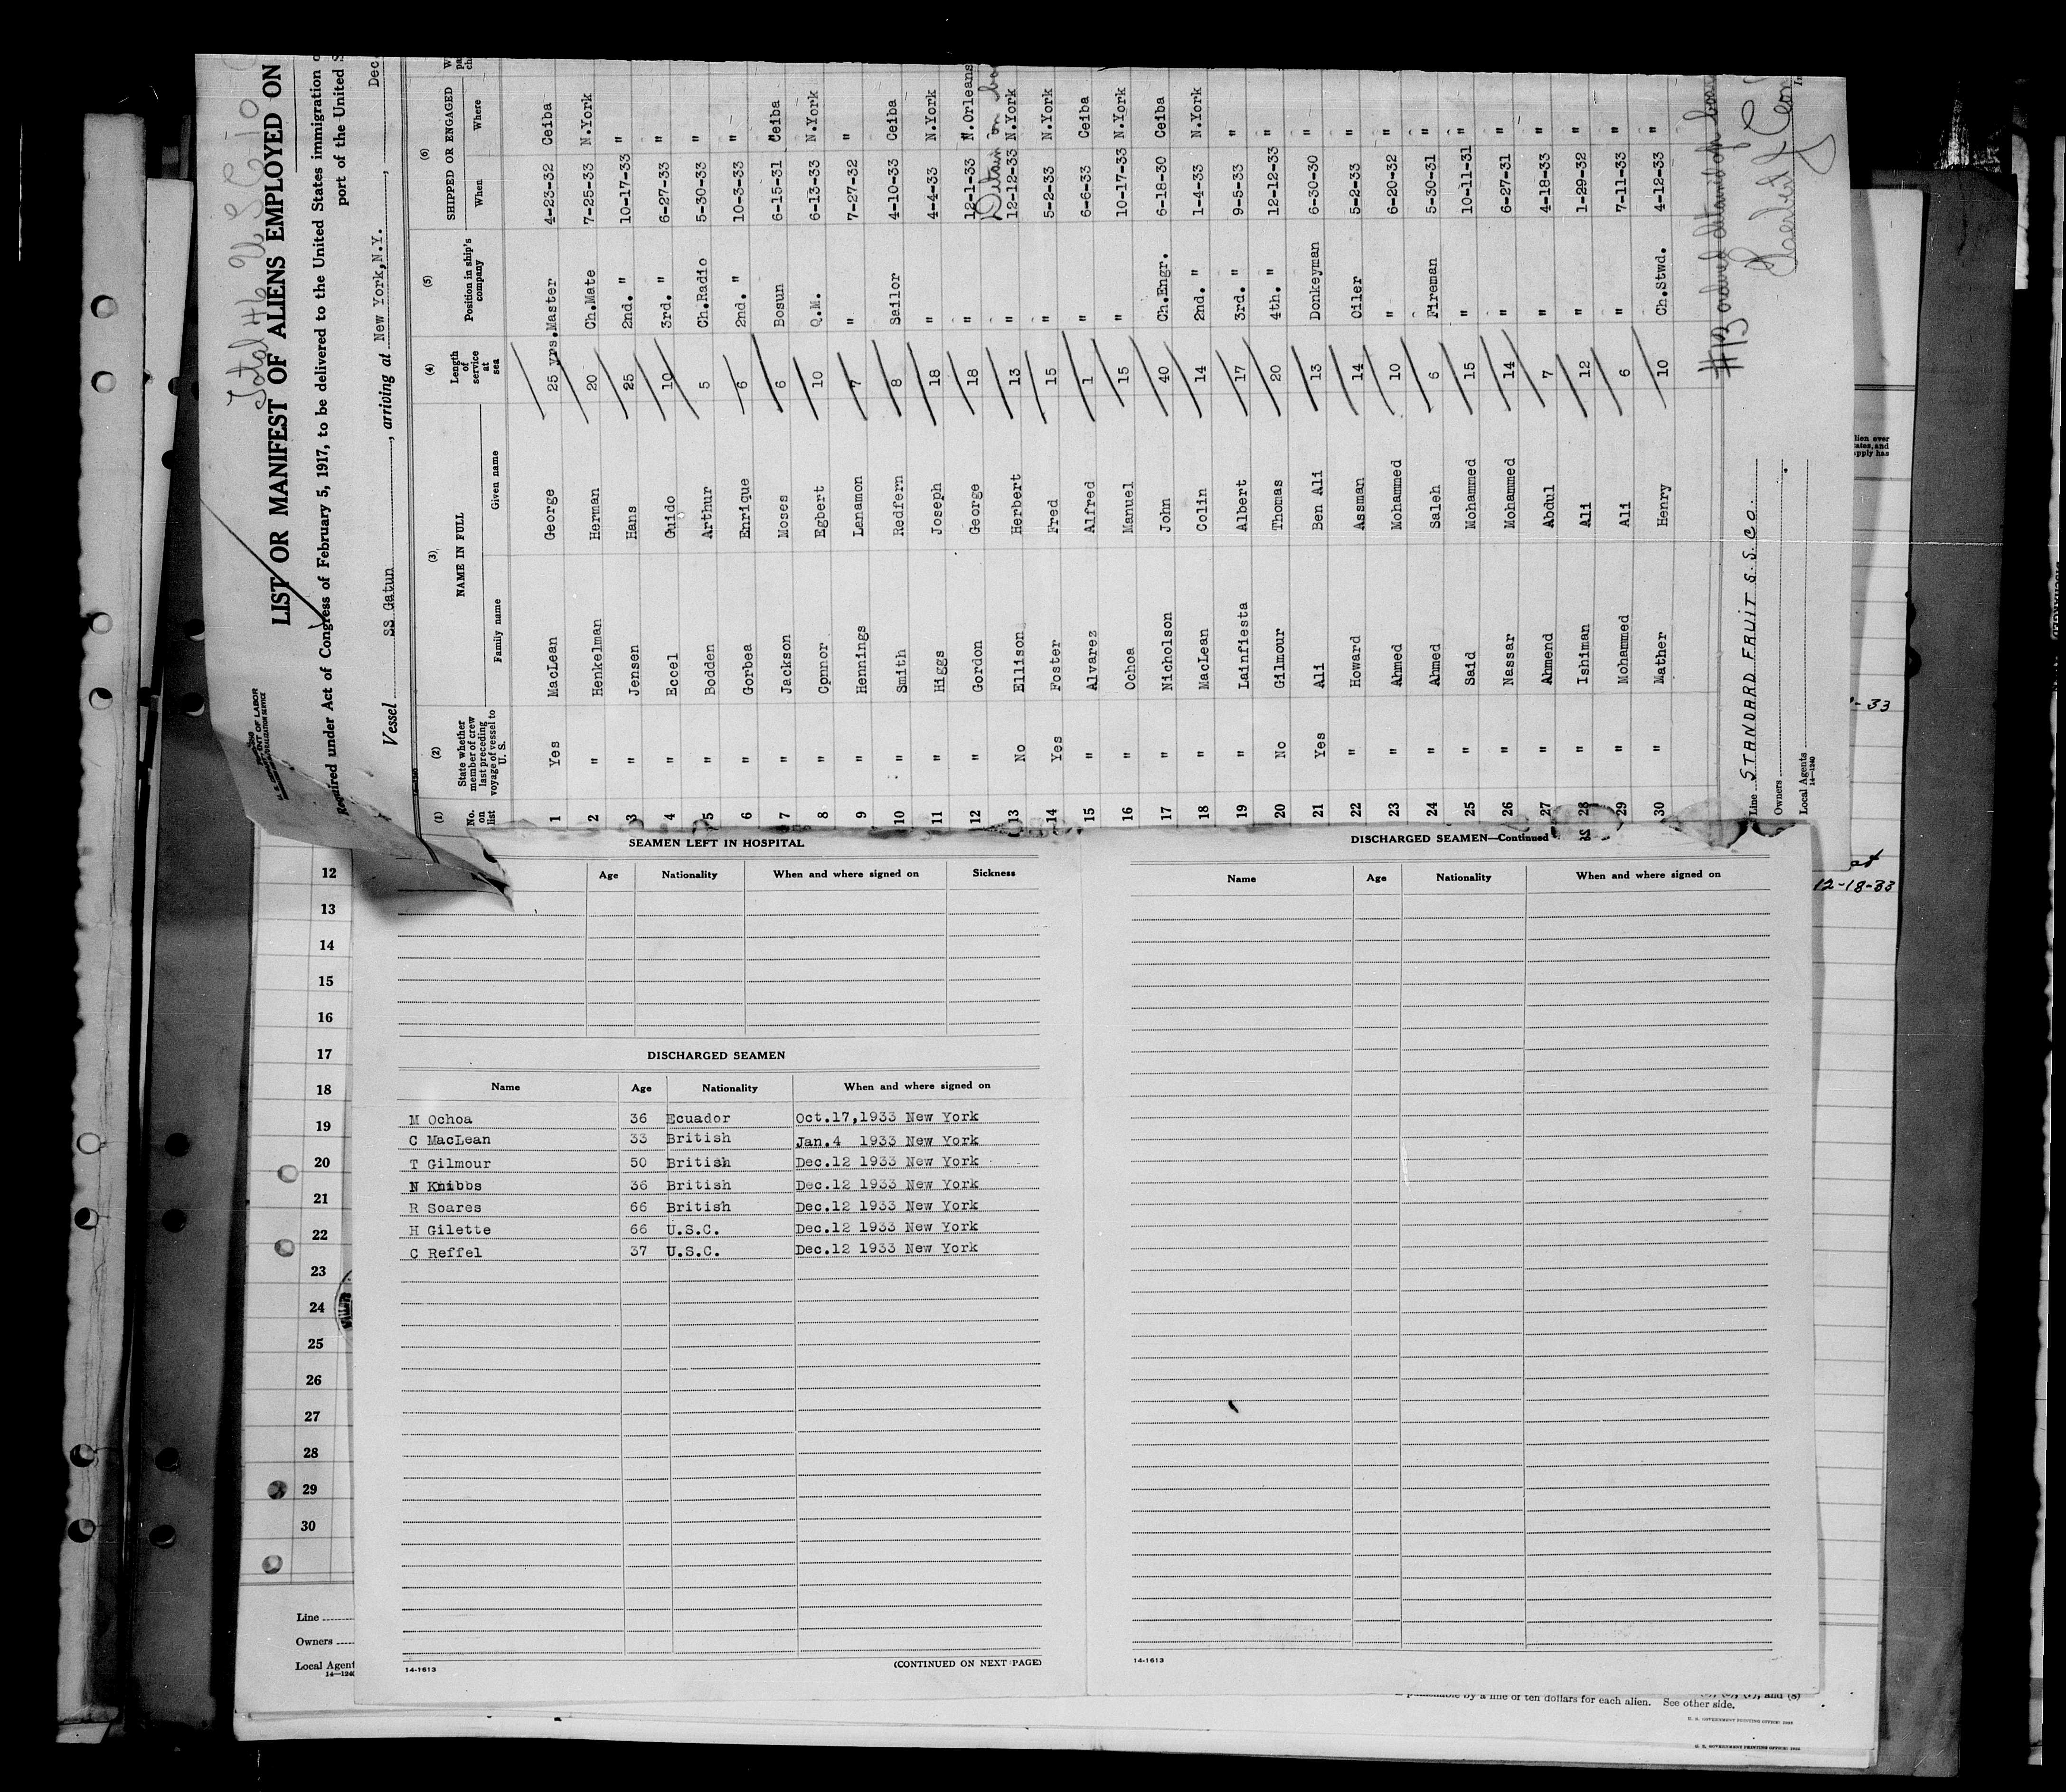 Total 46 U S C 10
LIST OR MANIFEST OF ALIENS EMPLOYED ON
Required under Act of Congress of February 5, 1917, to be delivered to the United States immigration
port of the United
Vessel SS Gatun, arriving at New York, N.Y., Dec.
(1) (2) (3) (4) (5) (6)
No. on list State whether member of crew last preceding voyage of vessel to U. S. NAME IN FULL Family name Given name Length of service at sea Position in ship's company SHIPPED OR ENGAGED When Where
1 Yes MacLean George 25 yrs. Master 4-23-32 Ceiba
2 " Henkelman Herman 20 Ch.Mate 7-25-33 N.York
3 " Jensen Hans 25 2nd. " 10-17-33 "
4 " Eccel Guido 10 3rd. " 6-27-33 "
5 " Bodden Arthur 5 Ch.Radio 5-30-33 "
6 " Gorbea Enrique 6 2nd. " 10-3-33 "
7 " Jackson Moses 6 Bosun 6-15-31 Ceiba
8 " Connor Egbert 10 Q.M. 6-13-33 N.York
9 " Hennings Lenamon 7 " 7-27-32 "
10 " Smith Redfern 8 Sailor 4-10-33 Ceiba
11 " Higgs Joseph 18 " 4-4-33 N.York
12 " Gordon George 18 " 12-1-33 N.Orleans
Detain on
13 No Ellison Herbert 13 " 12-12-33 N.York
14 Yes Foster Fred 15 " 5-2-33 N.York
15 " Alvarez Alfred 1 " 6-6-33 Ceiba
16 " Ochoa Manuel 15 " 10-17-33 N.York
17 " Nicholson John 40 Ch.Engr. 6-18-30 Ceiba
18 " MacLean Colin 14 2nd. " 1-4-33 N.York
19 " Lainfiesta Albert 17 3rd. " 9-5-33 "
20 No Gilmour Thomas 20 4th. " 12-12-33 "
21 Yes Ali Ben Ali 13 Donkeyman 6-30-30 "
22 " Howard Assman 14 Oiler 5-2-33 "
23 " Ahmed Mohammed 10 " 6-20-32 "
24 " Ahmed Saleh 6 Fireman 5-30-31 "
25 " Said Mohammed 15 " 10-11-31 "
26 " Nassar Mohammed 14 " 6-27-31 "
27 " Ahmend Abdul 7 " 4-18-33 "
28 " Ishiman Ali 12 " 1-29-32 "
29 " Mohammed Ali 6 " 7-11-33 "
30 " Mather Henry 10 Ch.Stwd. 4-12-33 "
#13 ordered detained on board
Line STANDARD FRUIT S.S. CO.
Owners
Local Agents
14-1240
SEAMEN LEFT IN HOSPITAL
Age Nationality When and where signed on Sickness
DISCHARGED SEAMEN
Name Age Nationality When and where signed on
M Ochoa 36 Ecuador Oct.17,1933 New York
C MacLean 33 British Jan.4 1933 New York
T Gilmour 50 British Dec.12 1933 New York
N Knibbs 36 British Dec.12 1933 New York
R Soares 66 British Dec.12 1933 New York
H Gilette 66 U.S.C. Dec.12 1933 New York
C Reffel 37 U.S.C. Dec.12 1933 New York
14-1613
(CONTINUED ON NEXT PAGE)
DISCHARGED SEAMEN—Continued
Name Age Nationality When and where signed on
14-1613
12
13
14
15
16
17
18
19
20
21
22
23
24
25
26
27
28
29
30
Line
Owners
Local Agent
12-18-33
by a fine of ten dollars for each alien. See other side.
U. S. GOVERNMENT PRINTING OFFICE
U. S. GOVERNMENT PRINTING OFFICE